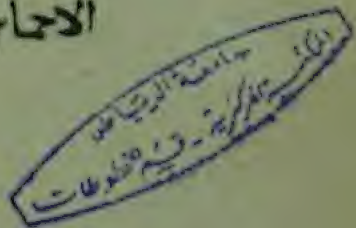 الاحما
جامعة الرياض
المكتبة المركزية - قسم المخطوطات